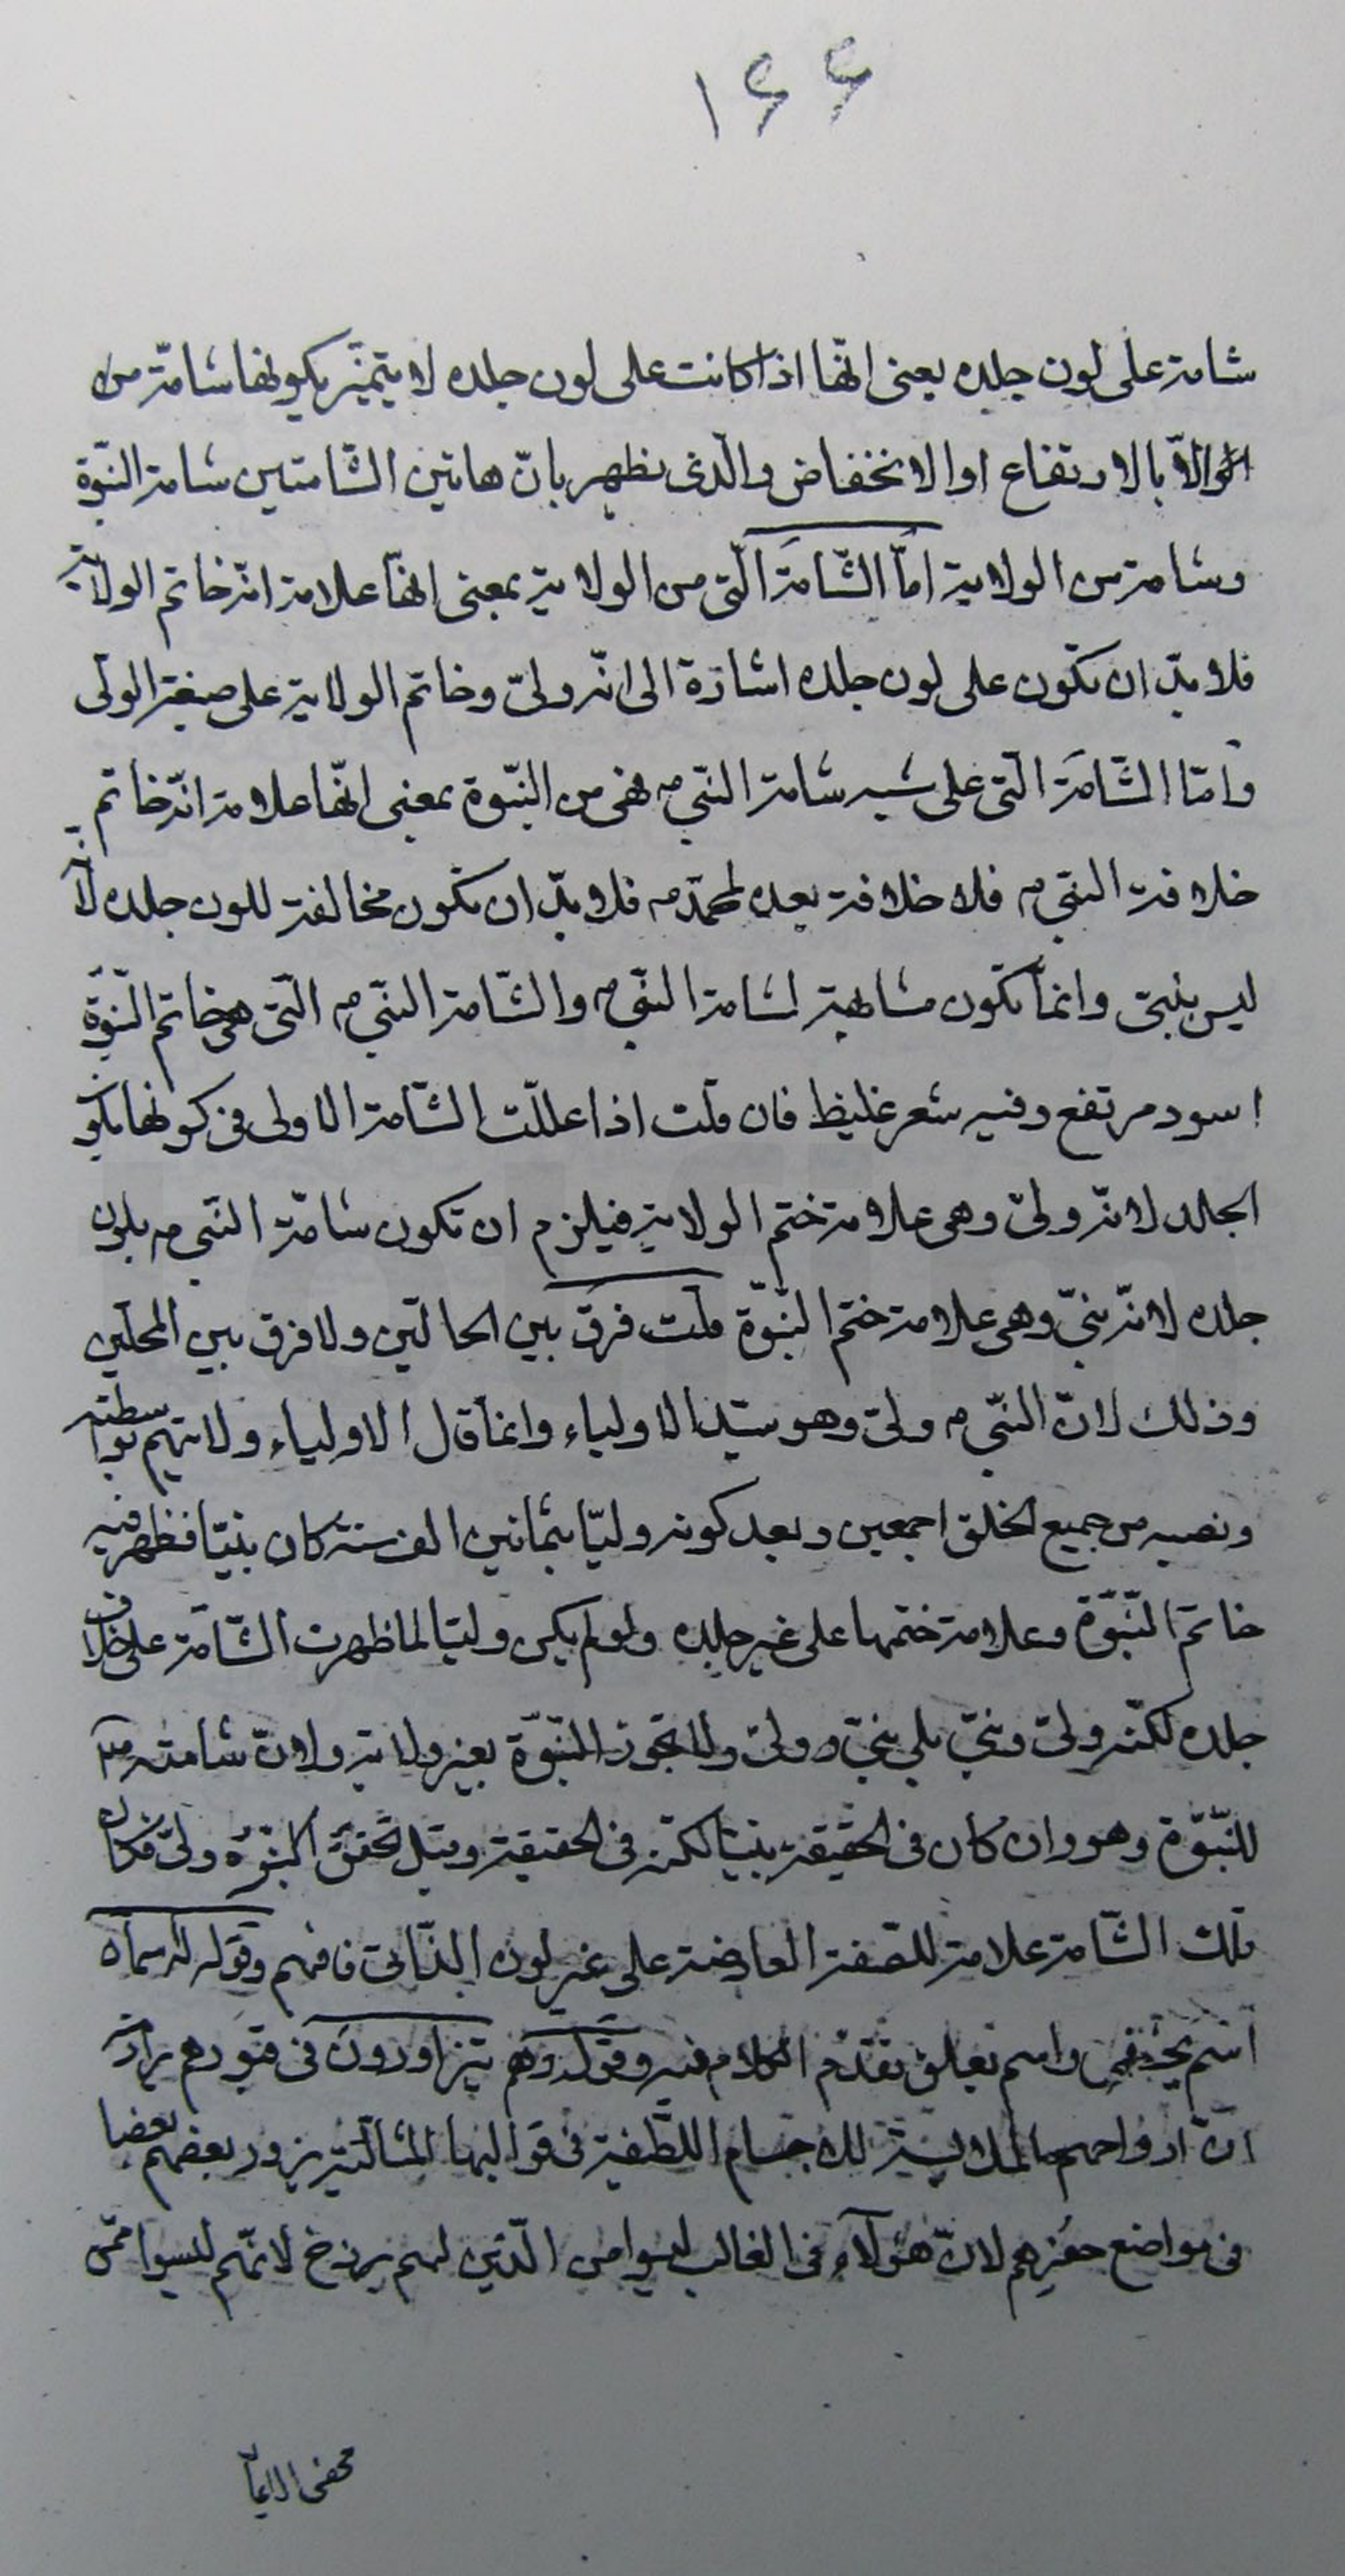 ١٤٤
شامة على لون جلده يعنى انّها اذا كانت على لون جلده لا يتميّز بكونها شامّة من
الّا بالارتفاع او الانخفاض والّذى يظهر بانّ هاتين الشّامتين شامة النبّوة
وشامة من الولاية امّا الشّامَة الّتى من الولاية بمعنى انهّا علامة انّه خاتم الولاية
فلا بدّ ان تكون على لون جلده اشارة الى انّه ولىّ وخاتم الولاية على صبغة الولى
وامّا الشّامَة الّتى على شبه شامة النّبى ص فهى من النبّوة بمعنى انهّا علامة انّه خاتم
خلافة النبّى ص فلا خلافة بعده لمحمّد ص فلا بدّ ان تكون مخالفة للون جلده لأنه
ليس بنبىّ وانمّا تكون مشابهة لشامة النّبى ص والشّامة النبّى ص الّتى هى خاتم النّبوّة
اسود مرتفع وفيه شعر غليظ فان قلت اذا عللّت الشّامة الاولى فى كونها بلون
الجلد لانّه ولىّ وهى علامة ختم الولاية فيلزم ان تكون شامّة النّبى ص بلون
جلده لانّه نبىّ وهى علامة ختم النّبوّة قلت فرق بين الحالتين ولا فرق بين المحلّين
وذلك لانّ النّبى ص ولىّ وهو سيّد الاولياء وانمّا قال الاولياء ولايتهم بواسطته
ونصبه من جميع الخلق اجمعين وبعد كونه وليّا بثمانين الف سنة كان نبيّا فظهر فيه
خاتم النّبوّة وعلامة ختمها على غير جلده ولو لم يكن وليّا لما ظهرت الشّامة على خلاف
جلده لكنّه ولىّ ونبىّ بلى نبىّ وولىّ ولا تجوز النّبوّة بغير ولاية ولانّ شامته ص
للنّبوّة وهو وان كان فى الحقيقة نبيّا لكنّه فى الحقيقة وقبل تحقق النبّوة ولىّ فكان
تلك الشّامة علامة للصّفة العارضة على غير لون الذّاتى فافهم وقوله له اسمان
اسم يخفى واسم يعلن تقدّم الكلام فيه وقوله وهم يتزاورون فى قبورهم يراد
انّ ارواحهم الملابسة للاجسام اللّطيفة فى قوالبها المثاليّة يزور بعضهم بعضا
فى مواضع حفرهم لانّ هؤلآء فى الغالب ليسوا من الّذين لهم برزخ لانّهم ليسوا ممّن
محض الايما